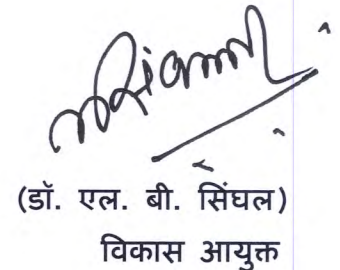 (डॉ. एल. बी. सिंघल)
विकास आयुक्त